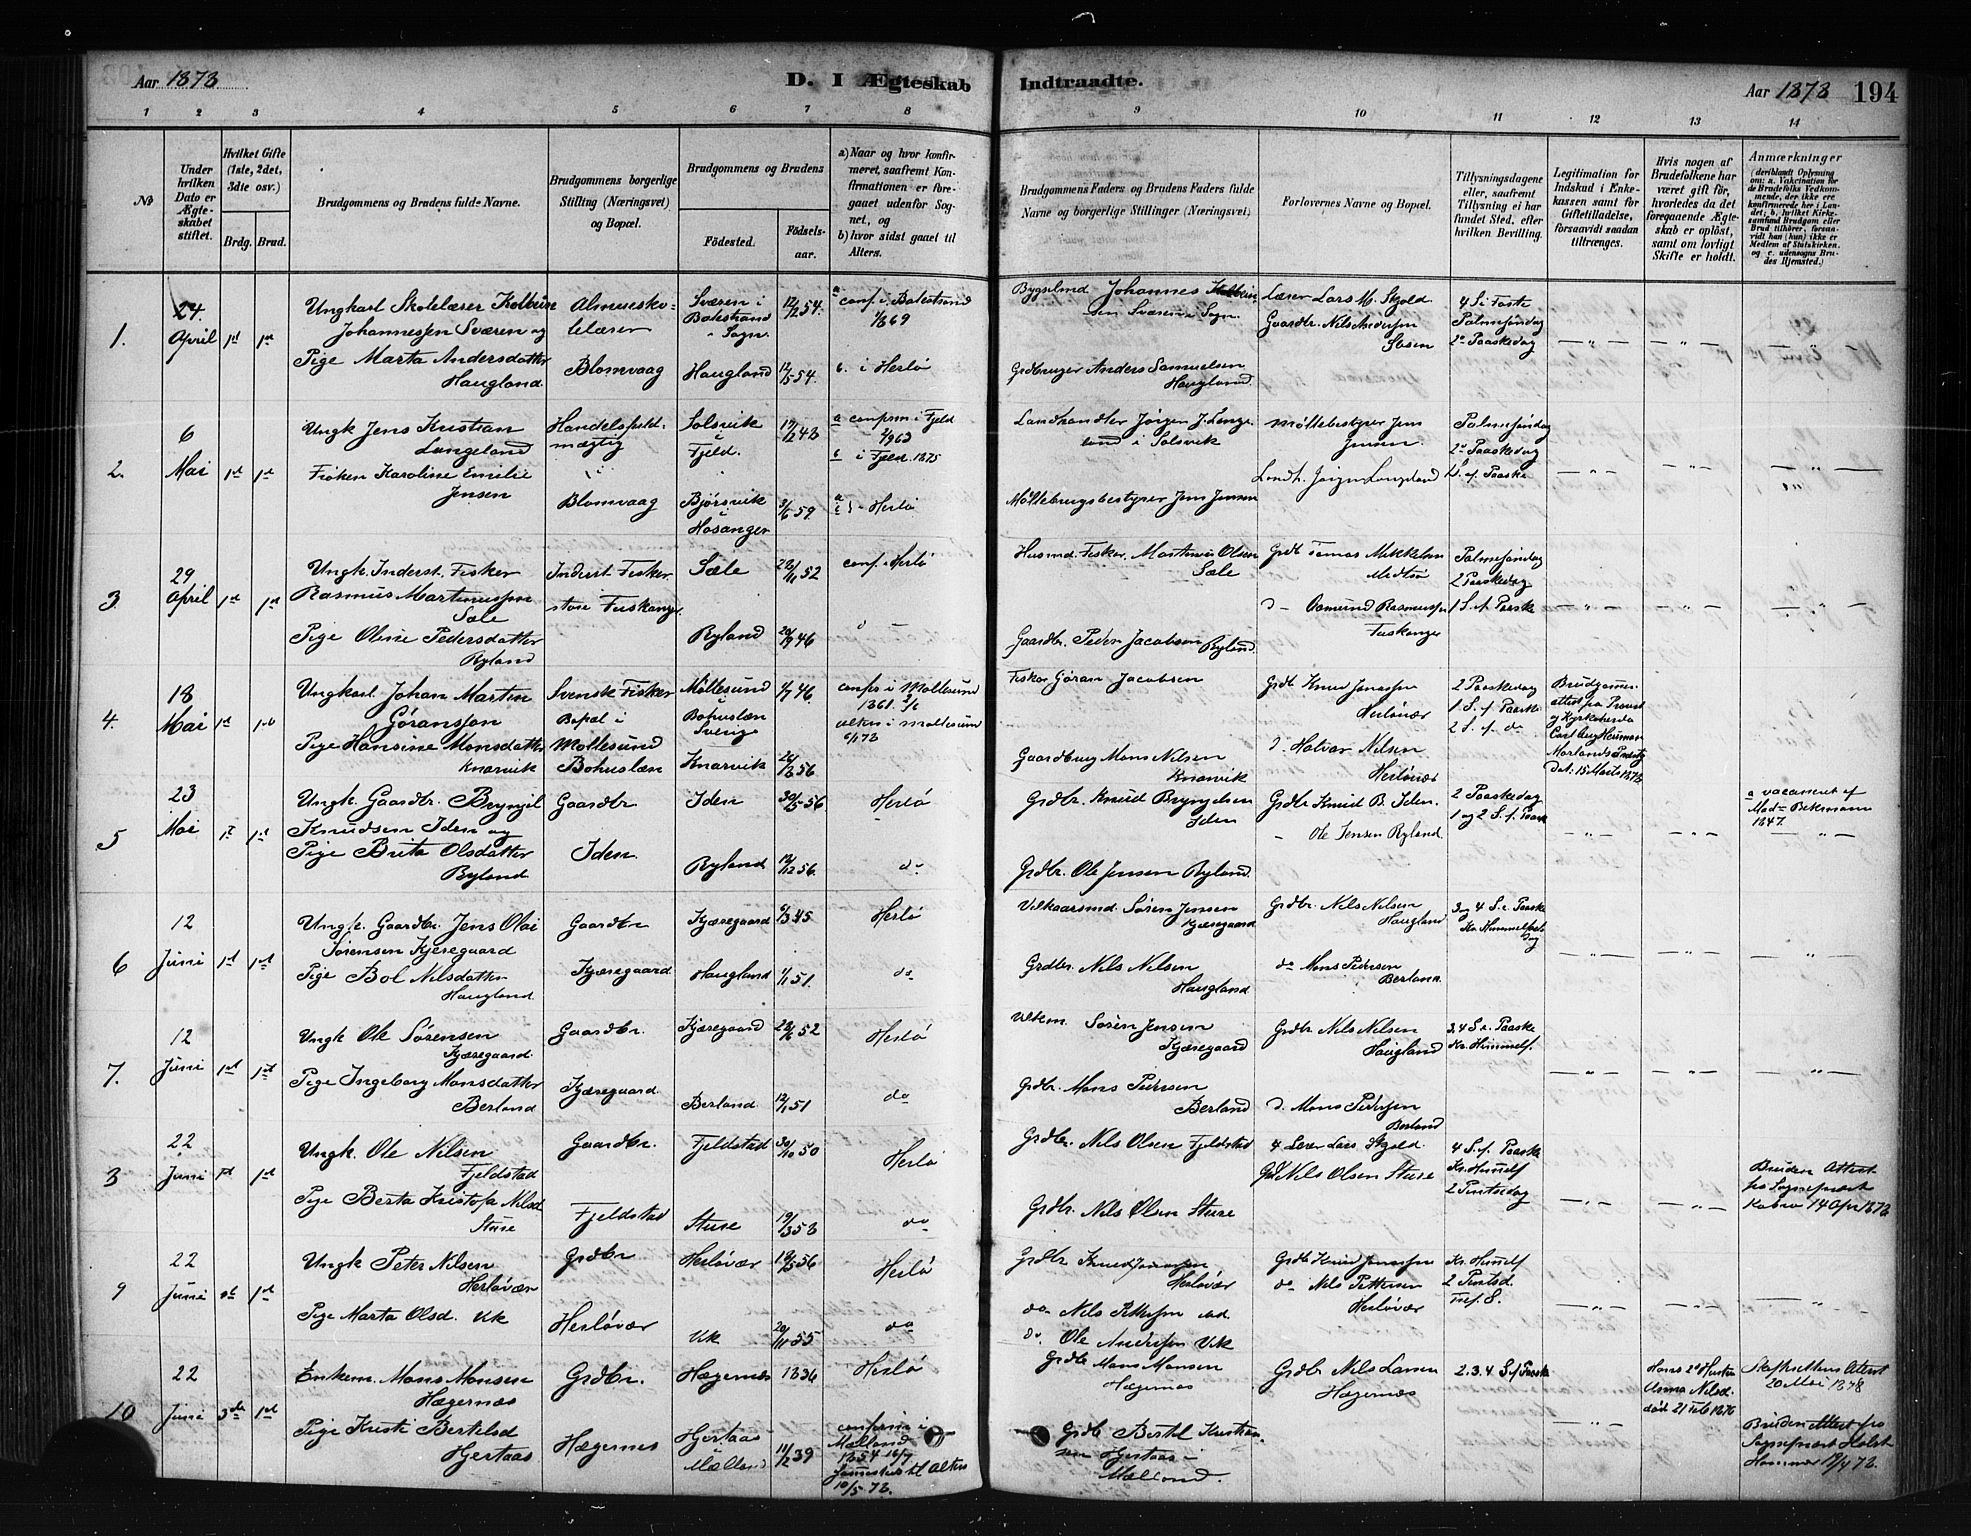 Aar 1878.
D. I Ægteskab Indtraadte.
Aar 1878 194
1 2 3 4 5 6 7 8 9 10 11 12 13 14
№
Under hvilken Dato er Ægteskabet stiftet.
Hvilket Gifte (1ste, 2det, 3dte osv.)
Brdg. Brud.
Brudgommens og Brudens fulde Navne.
Brudgommens borgerlige Stilling (Næringsvei) og Bopæl.
Brudgommens og Brudens
Födested. Födselsaar.
a) Naar og hvor konfirmeret, saafremt Konfirmationen er foregaaet udenfor Sognet, og
b) hvor sidst gaaet til Alters.
Brudgommens Faders og Brudens Faders fulde Navne og borgerlige Stillinger (Næringsvei)
Forlovernes Navne og Bopæl.
Tillysningsdagene eller, saafremt Tillysning ei har fundet Sted, efter hvilken Bevilling.
Legitimation for Indskud i Enkekassen samt for Giftetilladelse, forsaavidt saadan tiltrænges.
Hvis nogen af Brudefolkene har været gift för, hvorledes da det foregaaende Ægteskab er oplöst, samt om lovligt Skifte er holdt.
Anmærkninger
(deriblandt Oplysning om: a. Vakcination for de Brudefolks Vedkommende, der ikke ere konfirmerede her i Landet; b, hvilket Kirkesamfund Brudgom eller Brud tilhörer, forsaavidt han (hun) ikke er Medlem af Statskirken. og c. udensogns Brudes Hjemsted.)
1. 24. April 1st 1st
Ungkarl Skolelærer Kolbein
Johannesen Sværen og
Pige Marta Andersdatter
Haugland.
Almueskolelærer
Blomvaag
Sværen i Balestrand i Sogn.
12/12 54.
Haugland 12/5 54.
a conf. i Balestrand
1869
b. i Herlö
Bygselmd Johannes
Sværen i Sogn.
Grdbruger Anders Samuelsen
Haugland.
Lærer Lars M. Skjold
Gaardbr. Nils Andersen
4 S i Faste
Palmesöndag
2n Paaskedag
2. 6 Mai 1st 1st
Ungk Jens Kristian
Langeland
Fröken Karoline Emilie
Jensen
Handelsfuldmægtig
i
Blomvaag
Solsvik i Fjeld. 17/12 43
Bjørsvik i Hosanger 3/6 59
a confirm i Fjeld
1/9 63
b i Fjeld 1875
Herlö
Landhandler Jörgen J. Langeland i Solsvik
Möllebrugsbestyrer Jens Jensen
Möllebestyrer Jens Jensen
Landh. Jörgen Langeland
Palmesöndag
2n Paaskedag
1 S. e. Paaske
3. 29 April 1st 1st
Ungk. Inderst. Fisker
Rasmus Martinussen
Sæle
Pige Oline Pedersdatter
Ryland
Inderst. Fisker
store Fuskanger.
Sæle 22/11 52
Ryland 20/9 46
conf. Herlö
Husmd. Fisker. Martinus Olsen
Sæle
Gaardbr. Peder Jacobsen Ryland.
Grdb Tomas Mikkelsen
Midtsö
d- Osmund Rasmussen
Fuskanger
Palmesöndag
2 Paaskedag
1 S. e. Paaske
4. 18 Mai 1st 1st
Ungkarl Johan Martin
Göransson
Pige Hansine Monsdatter
Knarvik
Svensk Fisker
Bopæl i
Mollesund
Bohuslæn
Mollesund
Bohuslæn
Sverige
4/7 46.
Knarvik 26/8 56
confir i Mollesund
1861.
alters i Mollesund
Fisker Göran Jacobsen
Gaardbrug Mons Nilsen
Knarvik
Grdb Knud Jonassen
Herlövær
d. Halvor Nilsen
Herlövær
2 Paaskedag
1 S. e. Paaske
2 S. e. do
Brudgommens
attest fra Provst
og Kyrkoherde
Morlands Præstg
Dat. 15 Marts 1878
5 23 Mai 1st 1st
Ungk. Gaardbr. Brynjel
Knudsen Iden og
Pige Brita Olsdatter
Ryland.
Gaardbr
Iden.
Iden 30/5 56
Ryland 12/12 56.
Herlö
do
Grdbr. Knud Brynjelsen
Iden
Grdbr. Ole Jensen Ryland.
Grdbr Knud B. Iden.
Ole Jensen Ryland.
2 Paaskedag
1 og 2 S. e. Paask
a vaccineret af
Mad= Bekmann
1847.
6 12 Juni 1st 1st
Ungk. Gaardbr. Jens Olai
Sörensen Kjæregaard
Pige Bol Nilsdatter
Haugland.
Gaardbr
Kjæregaard
Kjæregaard 6/3 45
Haugland 1/1 51.
Herlö
do
Vilkaarsmd. Sören Jensen
Kjæregaard
Grdbr. Nils Nilsen
Haugland
Grdbr. Nils Nilsen
Haugland
do Mons Pedersen
Berland.
3 og 4 S. e. Paaske
Kr. Himmelfartsdag
7. 12 Juni 1st 1st
Ungk Ole Sörensen
Kjæregaard.
Pige Ingeborg Monsdatter
Berland
Gaardbr.
Kjæregaard.
Kjæregaard 22/6 52
Berland. 12/1 51
Herlö
do
Vilkm. Sören Jensen
Kjæregaard
Grdbr. Mons Pedersen
Berland
Grdbr Nils Nilsen
Haugland
d. Mons Pedersen
Berland
3. 4 S. e. Paaske
Kr. Himmelf.
8 22 Juni 1st 1st
Ungk. Ole Nilsen
Fjeldstad
Pige Berta Kristofa Nilsd
Sture
Gaardbr.
Fjeldstad
Fjeldstad 30/10 50
Sture 19/3 58
Herlö
do
Grdbr. Nils Olsen Fjeldstad
Grdbr. Nils Olsen Sture
Lærer Lars Skjold.
Grdb Nils Olsen Sture
4 S. e. Paaske
Kr. Himmelf
2 Pintsedag
Brudens Attest
fra Sognepræst
14 Apr 1878
9 22 Juni 1st 1st
Ungk Peter Nilsen
Herlövær
Pige Marta Olsd. Vik
Grdbr
Herlövær
Herlövær 19/5 56
Vik 20/11 55
Herlö
do
Grdbr Knud Jonassen
Herlövær
do Nils Pettersen
do. Ole Andersen Vik
Grdb Knud Jonassen
do Nils Pettersen
Herlövær
Kr. Himmelf
2 Pintsd.
Tref. S.
10 22 Juni 3de 1st
Enkem. Mons Monsen
Hægernæs
Pige Kristi Bertelsd
Hjertaas
Grdbr.
Hægernes
Hægernæs 1836
Hjertaas
Mæland
11/2 39
Herlö
confirm i
Mælland
1854
10/5 78.
Grdb Mons Monsen
Hægernæs
Grdb Bertel Kristiansen Hjertaas i
Mælland.
Grdbr Nils Larsen
Hægernæs
2. 3. 4 S. e. Paaske
Hans 2n Hustru
Anna Nilsd.
död 21 Feb 1876
Skifterettens Attest
20 Mai 1878
Brudens Attest fra
Sognepræst Holst
Hammer 19/4 78.